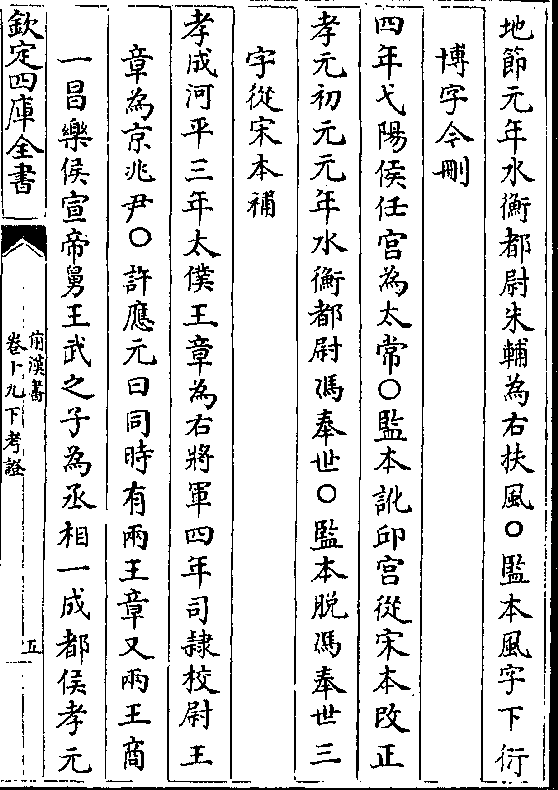 地節元年水衡都尉朱輔為右扶風○監本風字下衍
博字今刪
四年弋陽侯任宫為太常○監本訛邱宫從宋本改正
孝元初元元年水衡都尉馮奉世○監本脱馮奉世三
字從宋本補
孝成河平三年太僕王章為右將軍四年司隷校尉王
章為京兆尹○許應元曰同時有兩王章又兩王商
一昌樂侯宣帝舅王武之子為丞相一成都侯孝元
欽定四庫全書
前漢書
卷十九下考證
五